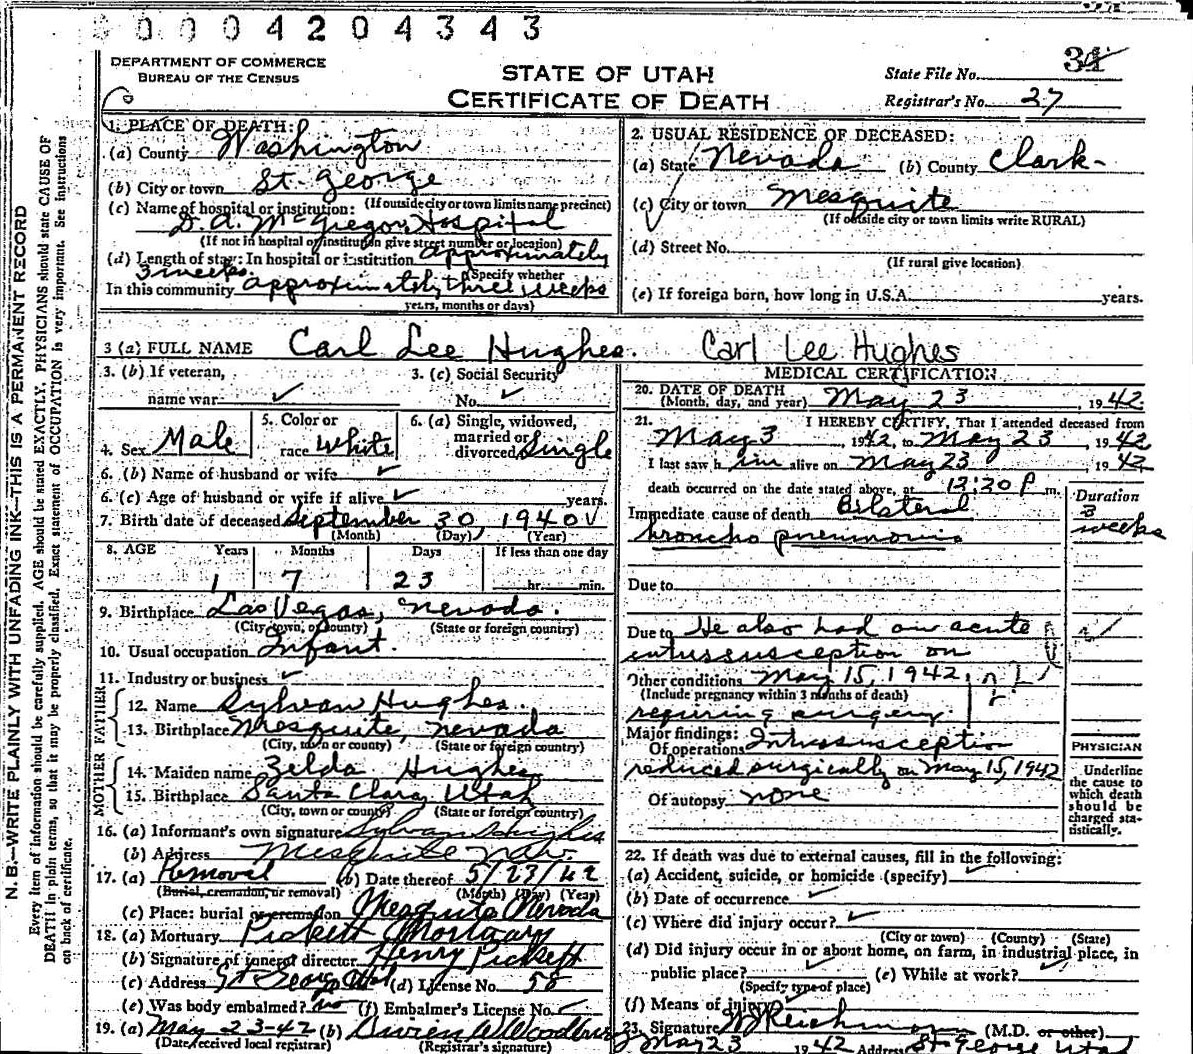 0004204343
34
DEPARTMENT OF COMMERCE
BUREAU OF THE CENSUS
STATE OF UTAH
CERTIFICATE OF DEATH
State File No.
Registrar's No. 27
N. B.—WRITE PLAINLY WITH UNFADING INK—THIS IS A PERMANENT RECORD
Every item of information should be carefully supplied. AGE should be stated EXACTLY. PHYSICIANS should state CAUSE OF
DEATH in plain terms, so that it may be properly classified. Exact statement of OCCUPATION is very important. See instructions
on back of certificate.
1. PLACE OF DEATH:
(a) County Washington
(b) City or town St. George
(If outside city or town limits name precinct)
(c) Name of hospital or institution:
D. A. McGregor Hospital
(If not in hospital or institution give street number or location)
(d) Length of stay: In hospital or institution approximately
3 weeks. (Specify whether
In this community approximately three weeks
years, months or days)
2. USUAL RESIDENCE OF DECEASED:
(a) State Nevada (b) County Clark-
(c) City or town Mesquite
(If outside city or town limits write RURAL)
(d) Street No.
(If rural give location)
(e) If foreign born, how long in U.S.A. years.
3 (a) FULL NAME Carl Lee Hughes. Carl Lee Hughes
3. (b) If veteran,
name war
3. (c) Social Security
No.
4. Sex Male
5. Color or
race White
6. (a) Single, widowed,
married or
divorced Single
6. (b) Name of husband or wife
6. (c) Age of husband or wife if alive years.
7. Birth date of deceased September 30, 1940
(Month) (Day) (Year)
8. AGE Years Months Days If less than one day
1 7 23 hr. min.
9. Birthplace Las Vegas, Nevada.
(City, town, or county) (State or foreign country)
10. Usual occupation Infant.
11. Industry or business
FATHER
12. Name Sylvan Hughes.
13. Birthplace Mesquite, Nevada
(City, town or county) (State or foreign country)
MOTHER
14. Maiden name Zelda Hughes
15. Birthplace Santa Clara, Utah
(City, town or county) (State or foreign country)
16. (a) Informant's own signature Sylvan Hughes
(b) Address Mesquite Nev.
17. (a) Removal (b) Date thereof 5/23/42
(Burial, cremation, or removal) (Month) (Day) (Year)
(c) Place: burial or cremation Mesquite Nevada
18. (a) Mortuary Pickett Mortuary
(b) Signature of funeral director Henry Pickett
(c) Address St George Utah (d) License No. 55
(e) Was body embalmed? No (f) Embalmer's License No.
19. (a) May 23-42 (b)
(Date received local registrar) (Registrar's signature)
MEDICAL CERTIFICATION
20. DATE OF DEATH
(Month, day, and year) May 23, 1942
21. I HEREBY CERTIFY, That I attended deceased from
May 3 1942, to May 23, 1942
I last saw him alive on May 23, 1942
death occurred on the date stated above, at 12:20 P m.
Immediate cause of death Bilateral
broncho pneumonia
Duration
3
weeks
Due to
Due to He also had an acute
intussusception on
Other conditions May 15, 1942
(Include pregnancy within 3 months of death)
requiring surgery.
Major findings:
Of operations Intussusception
reduced surgically on May 15, 1942
Of autopsy none
PHYSICIAN
Underline
the cause to
which death
should be
charged sta-
tistically.
22. If death was due to external causes, fill in the following:
(a) Accident, suicide, or homicide (specify)
(b) Date of occurrence
(c) Where did injury occur?
(City or town) (County) (State)
(d) Did injury occur in or about home, on farm, in industrial place, in
public place? (e) While at work?
(Specify type of place)
(f) Means of injury
23. Signature (M.D. or other)
May 23 1942 Address St. George Utah